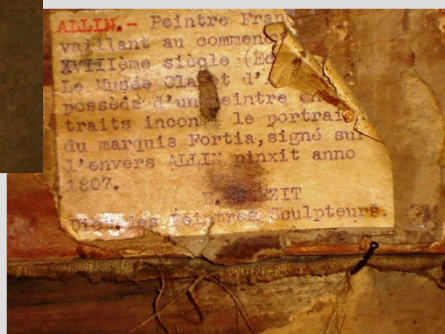 ALLIN.- Peintre Fran
vaillant au commenc
XVIIIème siècle (Ec
Le Musée Cla et d'
possède d'un peintre
traits incon le portrai
du marquis Fortia,signé sur
l'envers ALLIN pinxit anno
1807.
ZIT
des Peintres Sculpteurs.